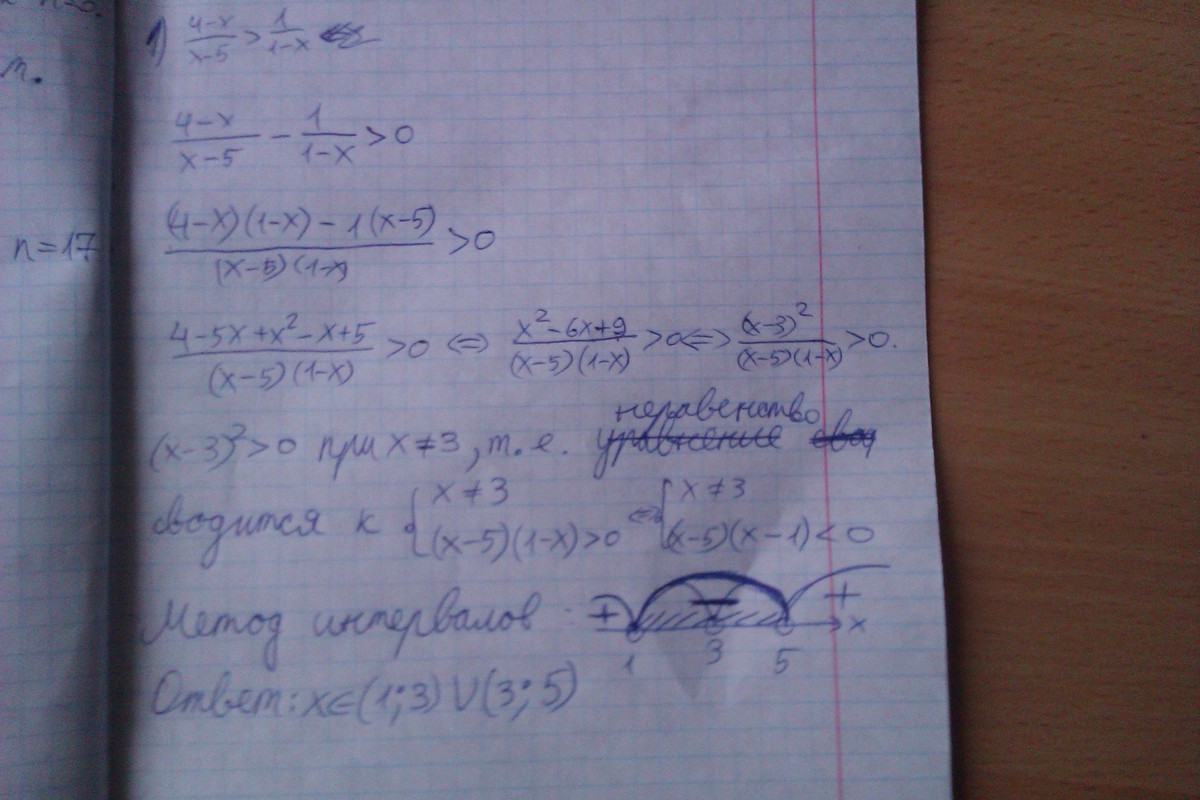 n.
n=17
1) (4-x)/(x-5) > 1/(1-x)
(4-x)/(x-5) - 1/(1-x) > 0
((4-x)(1-x) - 1(x-5))/((x-5)(1-x)) > 0
(4-5x+x²-x+5)/((x-5)(1-x)) > 0 ⇔ (x²-6x+9)/((x-5)(1-x)) > 0 ⇔ (x-3)²/((x-5)(1-x)) > 0.
неравенство
(x-3)² > 0 при x ≠ 3, т.е. уравнение свод
сводится к { x ≠ 3 ⇔ { x ≠ 3
(x-5)(1-x) > 0 (x-5)(x-1) < 0
Метод интервалов: + − + x
1 3 5
Ответ: x∈(1;3)∪(3;5)